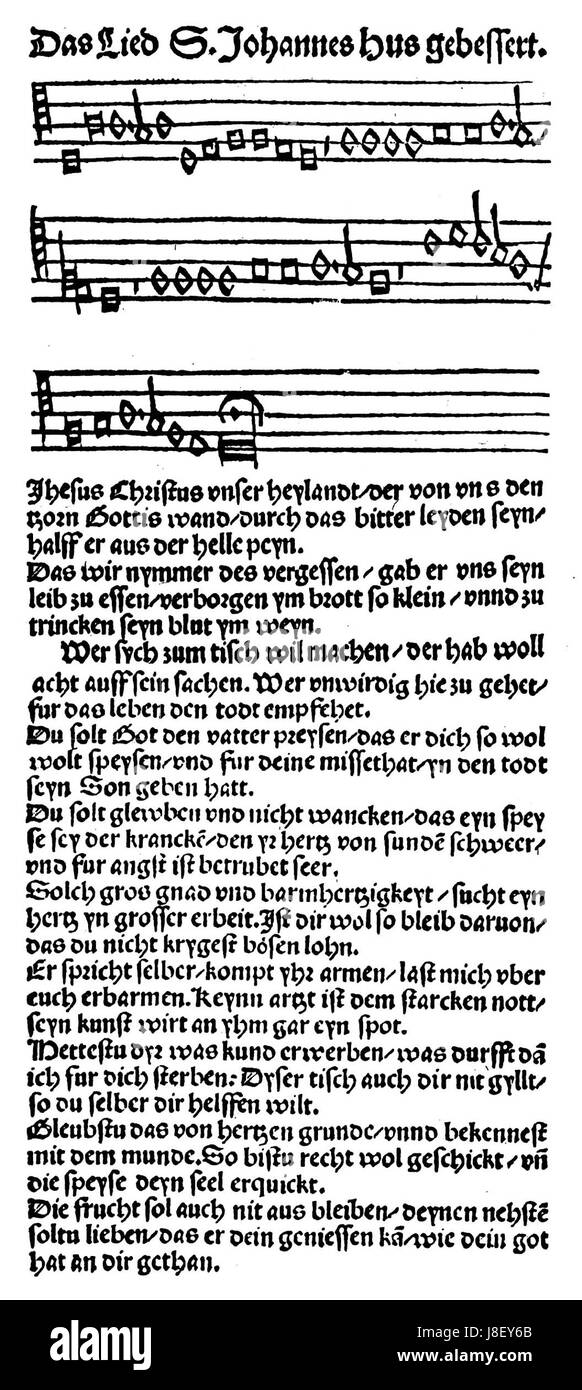 Das Lied S. Johannes Hus gebessert.
Jhesus Christus vnser heylandt/der von vns den
tzorn Gottis wand/durch das bitter leyden seyn/
halff er aus der helle peyn.
Das wir nymmer des vergessen/ gab er vns seyn
leib zu essen/verborgen ym brott so klein/vnnd zu
trincken seyn blut ym weyn.
Wer sych zum tisch wil machen/der hab woll
acht auff sein sachen. Wer vnwirdig hie zu gehet/
fur das leben den todt empfehet.
Du solt Got den vatter preysen/das er dich so wol
wolt speysen/vnd fur deine missethat/yn den todt
seyn Son geben hatt.
Du solt glewben vnd nicht wancken/das eyn spey
se sey der kranckē/den yr hertz von sundē schweer/
vnd fur angst ist betrubet seer.
Solch gros gnad vnd barmhertzigkeyt/sucht eyn
hertz yn grosser erbeit. Ist dir wol so bleib daruon/
das du nicht krygest bösen lohn.
Er spricht selber/kompt yhr armen/last mich vber
euch erbarmen. Keynn artzt ist dem starcken nott/
seyn kunst wirt an yhm gar eyn spot.
Hettestu dyr was kund erwerben/was durfft dā
ich fur dich sterben: Dyser tisch auch dir nit gyllt/
so du selber dir helffen wilt.
Gleubstu das von hertzen grunde/vnnd bekennest
mit dem munde. So bistu recht wol geschickt/vn̄
die speyse deyn seel erquickt.
Die frucht sol auch nit aus bleiben/deynen nehstē
soltu lieben/das er dein geniessen kā/wie dein got
hat an dir gethan.
alamy
Image ID: J8EY6B
www.alamy.com